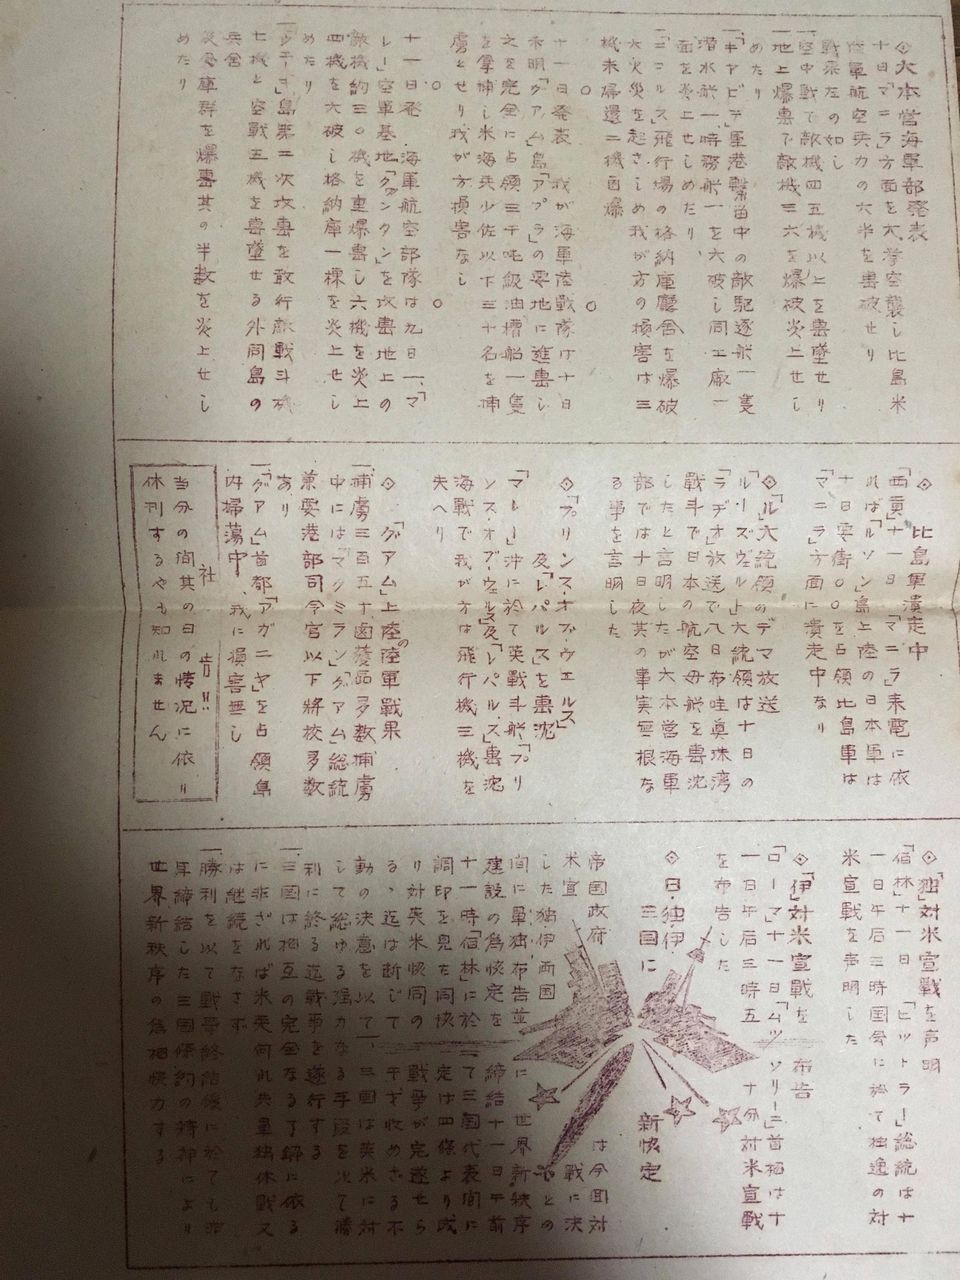 ◇大本営海軍部発表
十日「マニラ」方面を大挙空襲し比島米
陸軍航空兵力の大半を撃破せり
戦果左の如し
一空中戦で敵機四五機以上を撃墜せり
一地上爆撃で敵機三六を爆破炎上せし
めたり
一「キャビテ」軍港繋留中の敵駆逐艦一隻
潜水艦一特務艦一を大破し同工廠一
面を炎上せしめたり
一「ニコルス」飛行場の格納庫廳舎を爆破
大火災を起さしめ我が方の損害は三
機未帰還二機自爆
○ ○
十一日発表 我が海軍陸戦隊は十日
未明「グアム」島「アプラ」の要地に進撃し
之を完全に占領三千吨級油槽船一隻
を拿捕し米海兵少佐以下三十名を捕
虜とせり我が方損害なし
○ ○
十一日発 海軍航空部隊は九日一、「マ
レー」空軍基地「クァンタン」を攻撃地上の
敵機約三〇機を重爆撃し六機を炎上
四機を大破し格納庫一棟を炎上せし
めたり
島第二次攻撃を敢行敵戦斗機
七機と空戦五機を撃墜せる外同島の
兵舎
及倉庫群を爆撃其の半数を炎上せし
めたり
比島軍潰走中
「西貢」十一日「マニラ」来電に依
れば「ルソン」島上陸の日本軍は
十日要衝〇〇を占領比島軍は
「マニラ」方面に潰走中なり
◇「ル」大統領のデマ放送
「ルーズヴェルト」大統領は十日の
「ラヂオ」放送で八日布哇真珠湾
戦斗で日本の航空母艦を撃沈
したと言明したが大本営海軍
部では十日夜其の事実無根な
る事を言明した
◇「プリンス・オブ・ウェルス」
及「レパルス」を撃沈
「マレー」沖に於て英戦斗艦「プリ
ンス・オブウェルス」及「レパルス」撃沈
海戦で我が方は飛行機三機を
失へり
◇「グアム」上陸の陸軍戦果
一捕虜三百五十鹵獲品多数捕虜
中には「マクミラン」「グアム」総統
兼要港部司令官以下将校多数
あり
一「グアム」首都「アガニヤ」を占領島
内掃蕩中、我に損害無し
社 告!!
当分の間其の日の情況に依り
休刊するやも知れません
◇「独」対米宣戦を声明
「伯林」十一日「ヒットラー」総統は十
一日午后三時国会に於て独逸の対
米宣戦を声明した
◇「伊」対米宣戦を布告
「ローマ」十一日「ムッソリーニ」首相は十
一日午后三時五十分対米宣戦
を布告した
◇日・独・伊
三国に 新協定
帝国政府は今回対
米宣戦に決
した独伊両国との
間に単独布告並に世界新秩序
建設の為協定を締結十一日午前
十一時「伯林」に於て三国代表間に
調印を見た同協定は四條より成
り対英米協同の戦争が完遂せら
る、迄は断じて干戈収めざる不
動の決意を以て一、三国は英米に対
して総ゆる強力なる手段を以て勝
利に終る迄戦争を遂行する
一三国は相互の完全なる了解に依る
に非ざれば米英何れ共単独休戦又
は継続をなさず
一勝利を以て戦争終結後に於ても昨
年締結した三国條約の精神により
世界新秩序の為相協力する